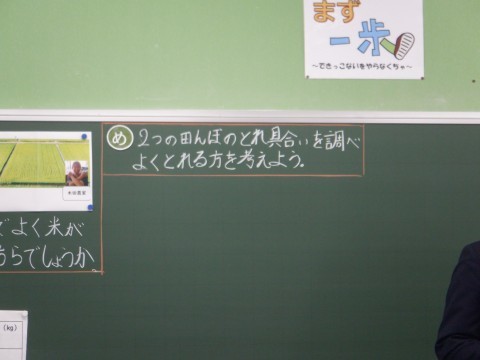 まず
一歩
～できっこないをやらなくちゃ～
め 2つの田んぼのとれ具合いを調べ
よくとれる方を考えよう.
でよく米が
ちらでしょうか
(kg)